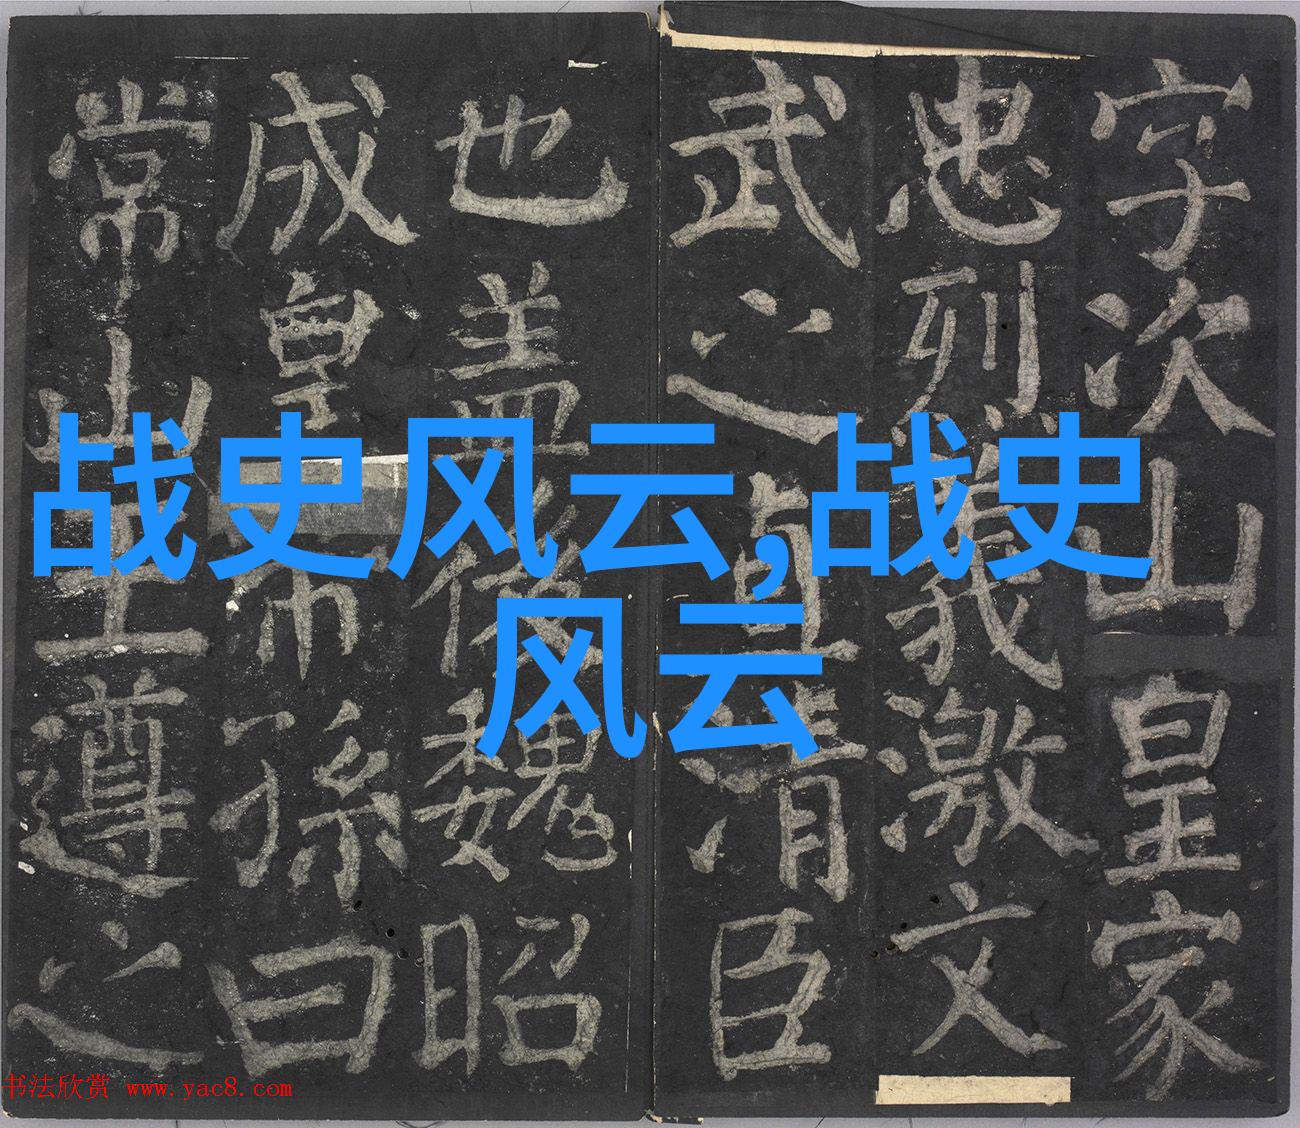 字次山皇家
忠烈義激文
武之直清臣
也盖後魏昭
成皇帝孫曰
常山王遵之
战史风云,战史
风云
书法欣赏 www.yac8.com